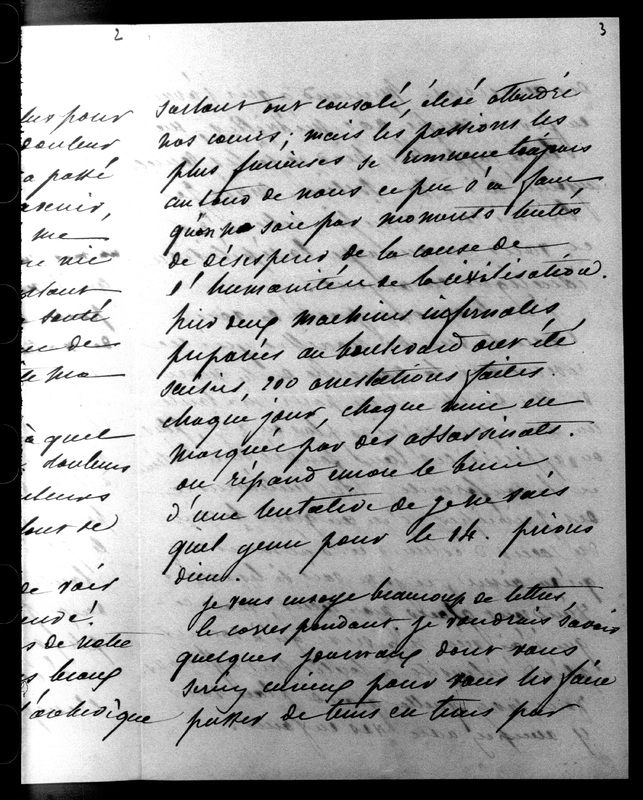 2
3
lus pour
douleur
a passé
avenir,
me
vie
santé
de
ma
à quel
douleurs
tout se
de voir
s de notre
beaux
surtout ont consolé, élevé attendri
nos cœurs; mais les passions les
plus furieuses se remuent toujours
autour de nous ce peu s'en faut
qu'on ne soit par moments tenté
de désespérer de la cause de
l'humanité et de la civilisation.
hier deux machines infernales,
préparées au boulevard ont été
saisies, 200 arrestations faites
chaque jour, chaque nuit est
marquée par des assassinats.
on répand encore le bruit
d'une tentative de je ne sais
quel genre pour le 14. prions
dieu.
je vous envoye beaucoup de lettres,
le correspondant. je voudrais savoir
quelques journaux dont vous
seriez curieux pour vous les faire
passer de tems en tems par